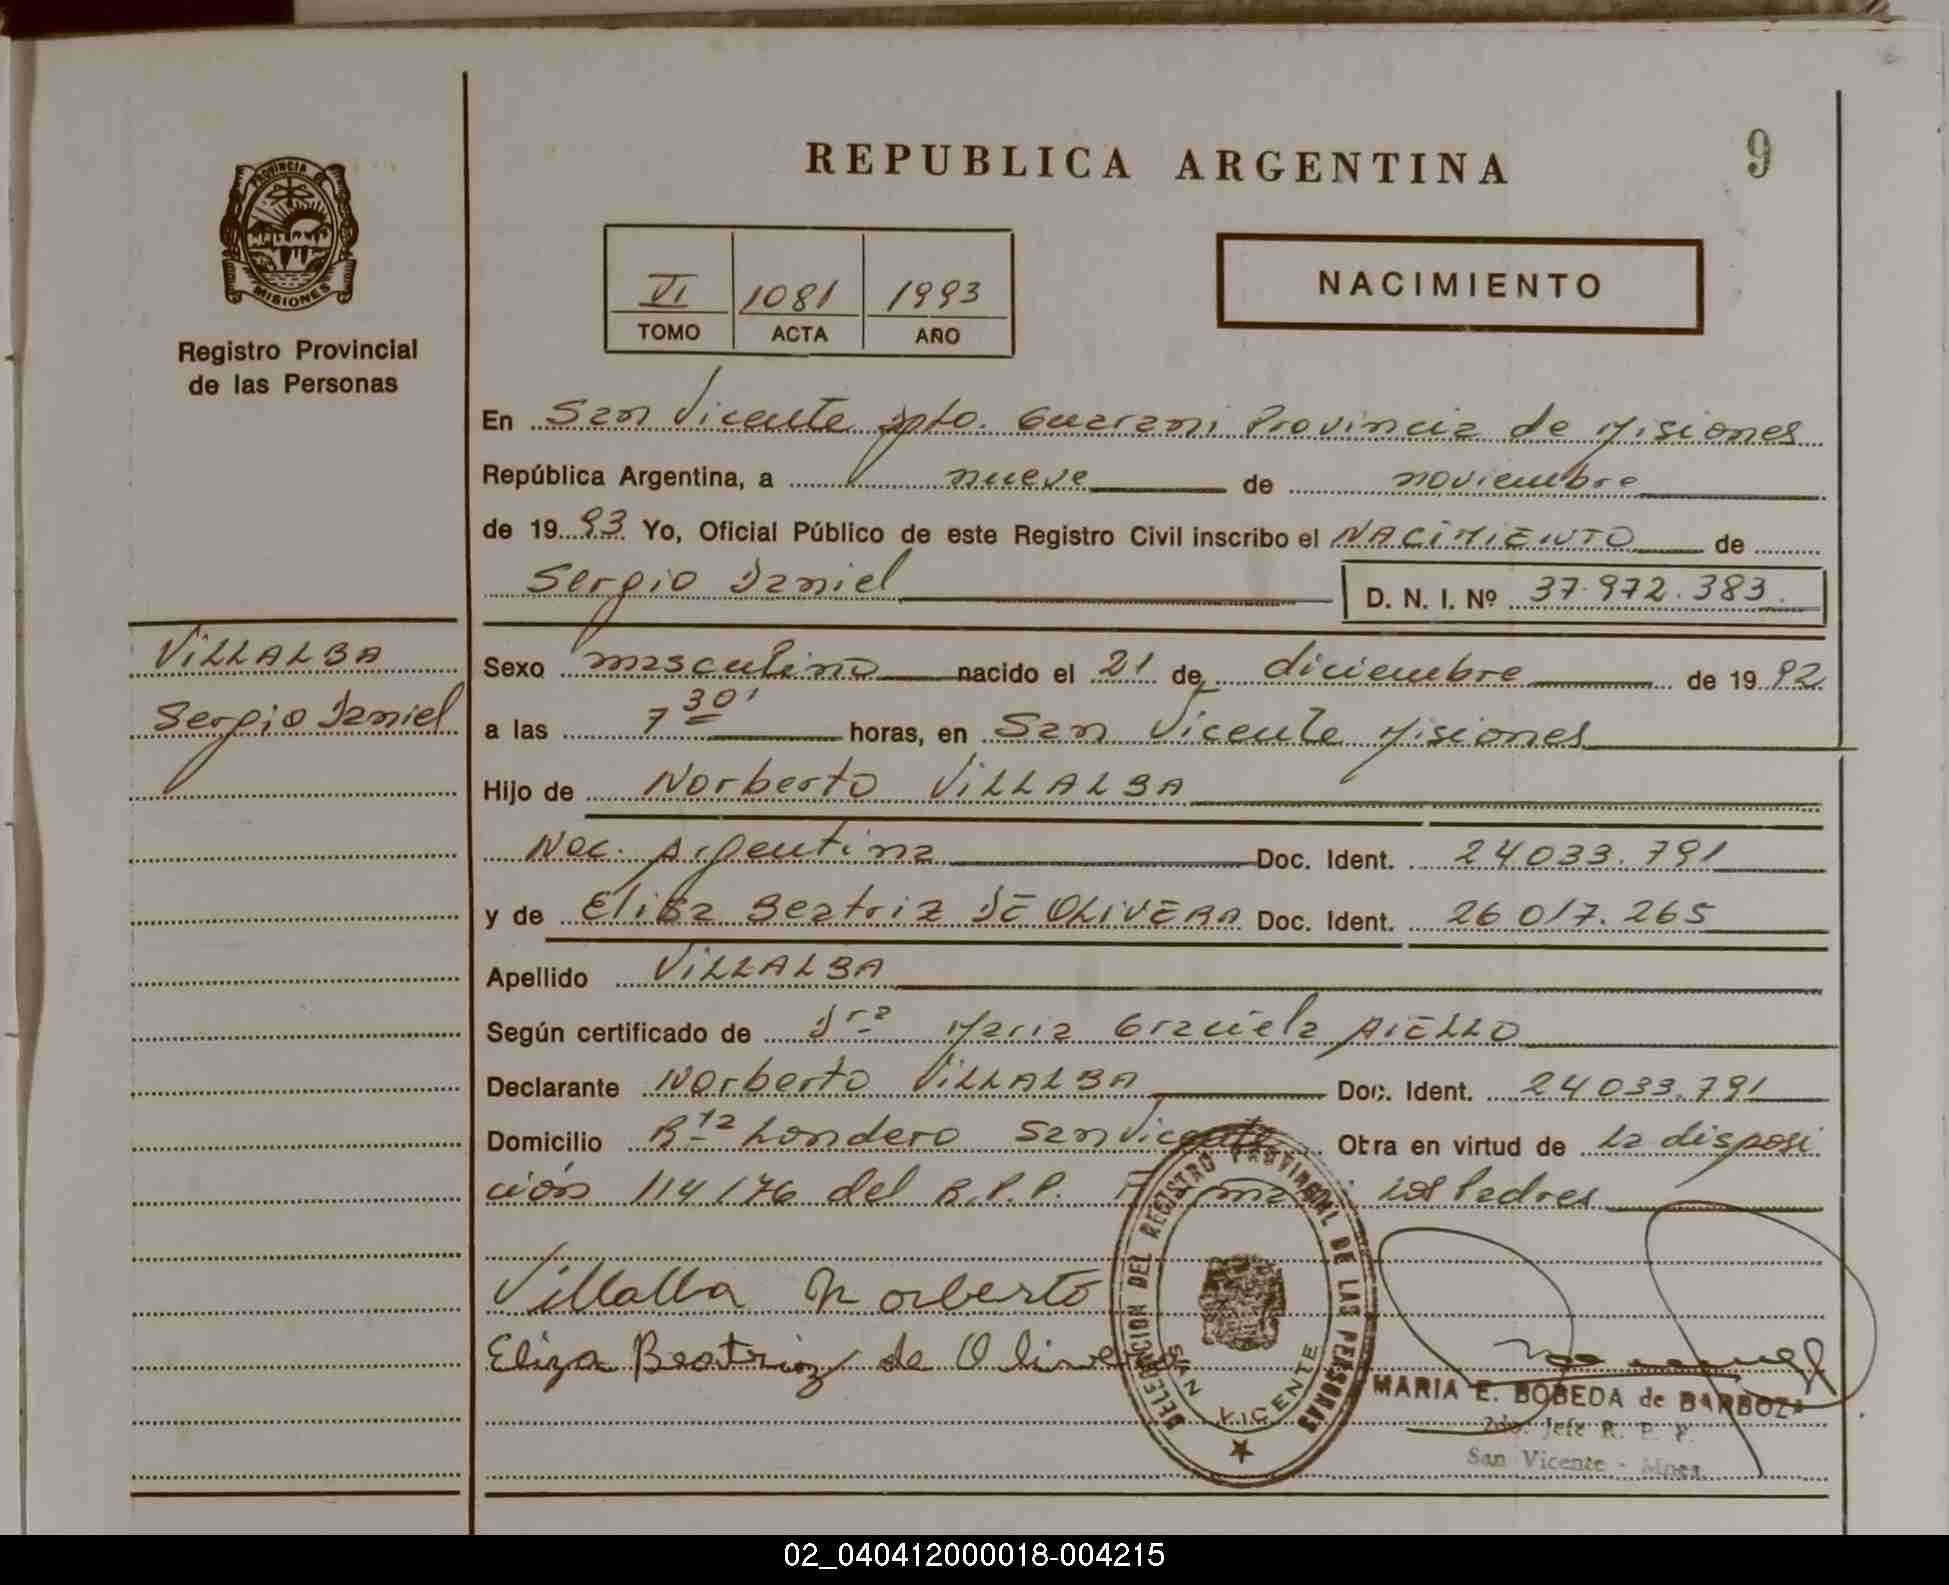 REPUBLICA ARGENTINA
9
PROVINCIA DE
MISIONES
Registro Provincial
de las Personas
VI 1081 1993
TOMO ACTA AÑO
NACIMIENTO
En San Vicente Dpto. Guarani Provincia de Misiones
República Argentina, a nueve de noviembre
de 1993 Yo, Oficial Público de este Registro Civil inscribo el NACIMIENTO de
Sergio Daniel D. N. I. Nº 37.972.383.
VILLALBA
Sergio Daniel
Sexo masculino nacido el 21 de diciembre de 1992
a las 7 30' horas, en San Vicente Misiones
Hijo de Norberto VILLALBA
Nac. Argentina Doc. Ident. 24.033.791
y de Elisa Beatriz DE OLIVERA Doc. Ident. 26.017.265
Apellido VILLALBA
Según certificado de Dra Maria Graciela AIELLO
Declarante Norberto VILLALBA Doc. Ident. 24.033.791
Domicilio Londero San Vicente Obra en virtud de la disposi
ción 114/76 del R.P.P. los Padres
Villalba Norberto
Eliza Beatriz de Olivera
DELEGACION DEL REGISTRO PROVINCIAL DE LAS PERSONAS
SAN VICENTE
MARIA E. BOBEDA de BARBOZA
2do. Jefe R. P. P.
San Vicente - Mnes.
02_040412000018-004215